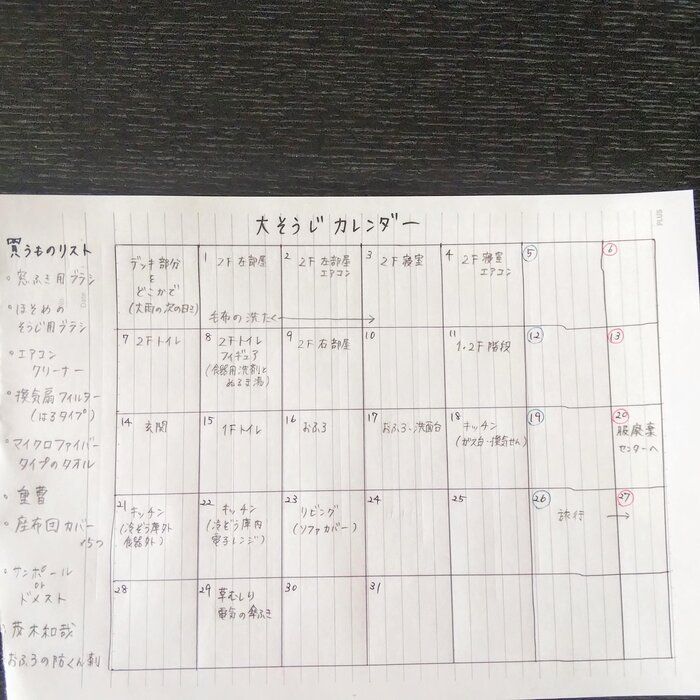 大そうじカレンダー
買うものリスト
・窓ふき用ブラシ
・ほそめの
そうじ用ブラシ
・エアコン
クリーナー
・換気扇フィルター
(はるタイプ)
・マイクロファイバー
タイプのタオル
・重曹
・座布団カバー
×5つ
・サンポール
or
ドメスト
・茂木和哉
おふろの防くん剤
デッキ部分
を
どこかで
(大雨の次の日に)
1 2F 左部屋
毛布の洗たく
2 2F 左部屋
エアコン
3 2F 寝室
4 2F 寝室
エアコン
5
6
7 2Fトイレ
8 2Fトイレ
フィギュア
(食器用洗剤と
ぬるま湯)
9 2F 右部屋
10
11
1・2F 階段
12
13
14 玄関
15 1Fトイレ
16 おふろ
17 おふろ・洗面台
18 キッチン
(ガス台・換気せん)
19
20
服廃棄
センターへ
21 キッチン
(冷ぞう庫外
食器外)
22 キッチン
(冷ぞう庫内
電子レンジ)
23 リビング
(ソファカバー)
24
25
26 旅行 →
27
28
29 草むしり
電気の傘ふき
30
31
PLUS